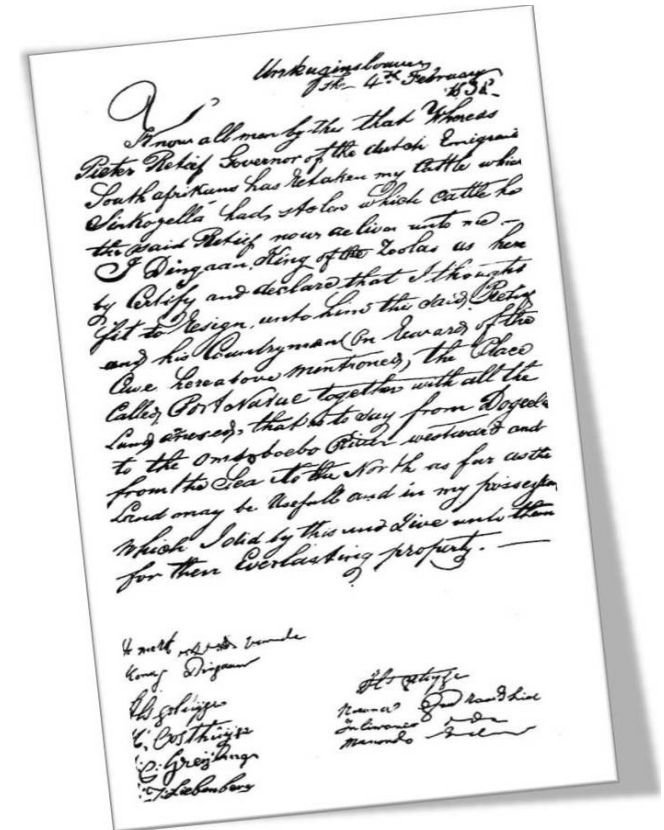 Unkuginsloave
the 4th February
1838
Know all men by this that Whereas
Pieter Retief Governor of the dutch Emigrant
South afrikans has Retaken my Cattle which
Sinkogella had stolen which cattle he
the said Retief now deliver unto me –
I Dingaan, King of the Zoolas as here
by Certify and declare that I thought
fit to Resign unto him the said Retief
and his Countrymen (on Reward of the
Case hereabove mentioned) the Place
Called Port Natal together with all the
Land annexed, that is to say from Dogeela
to the Omsoboebo River westward and
from the Sea to the North as far as the
Land may be Usefull and in my possession
Which I did by this and Give unto them
for their Everlasting property. —
Koning Dingaan
Oosthuyse
C Greyling
Liebenberg
Nwara
Juliwane
Manondo